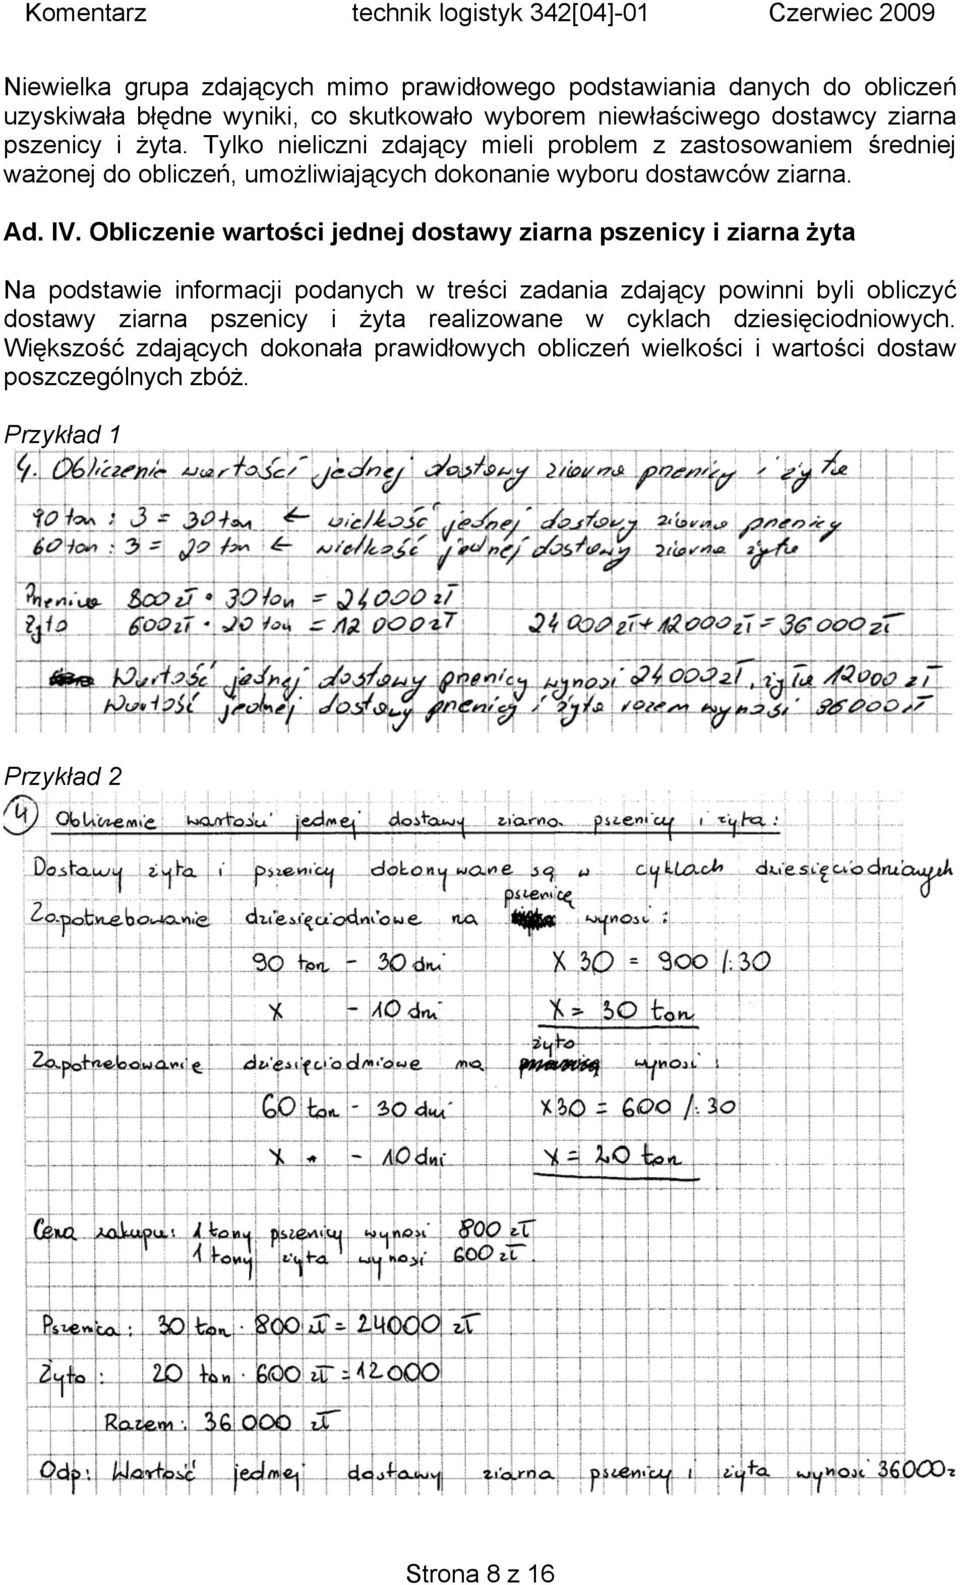 Komentarz technik logistyk 342[04]-01 Czerwiec 2009
Niewielka grupa zdających mimo prawidłowego podstawiania danych do obliczeń
uzyskiwała błędne wyniki, co skutkowało wyborem niewłaściwego dostawcy ziarna
pszenicy i żyta. Tylko nieliczni zdający mieli problem z zastosowaniem średniej
ważonej do obliczeń, umożliwiających dokonanie wyboru dostawców ziarna.
Ad. IV. Obliczenie wartości jednej dostawy ziarna pszenicy i ziarna żyta
Na podstawie informacji podanych w treści zadania zdający powinni byli obliczyć
dostawy ziarna pszenicy i żyta realizowane w cyklach dziesięciodniowych.
Większość zdających dokonała prawidłowych obliczeń wielkości i wartości dostaw
poszczególnych zbóż.
Przykład 1
4. Obliczenie wartości jednej dostawy ziarna pszenicy i żyta
90 ton : 3 = 30 ton ← wielkość jednej dostawy ziarna pszenicy
60 ton : 3 = 20 ton ← wielkość jednej dostawy ziarna żyta
Pszenica 800 zł • 30 ton = 24000 zł
Żyto 600 zł • 20 ton = 12 000 zł 24 000 zł + 12000 zł = 36 000 zł
Wartość jednej dostawy pszenicy wynosi 24 000 zł, żyta 12000 zł
Wartość jednej dostawy pszenicy i żyta razem wynosi 36000 zł
Przykład 2
4 Obliczenie wartości jednej dostawy ziarna pszenicy i żyta:
Dostawy żyta i pszenicy dokonywane są w cyklach dziesięciodnianych
Zapotrzebowanie dziesięciodniowe na pszenicę wynosi:
90 ton - 30 dni X 30 = 900 /:30
X - 10 dni X = 30 ton
Zapotrzebowanie dziesięciodniowe na żyto wynosi:
60 ton - 30 dni X30 = 600 /:30
X - 10 dni X = 20 ton
Cena zakupu: 1 tony pszenicy wynosi 800 zł
1 tony żyta wynosi 600 zł.
Pszenica: 30 ton · 800 zł = 24000 zł
Żyto: 20 ton · 600 zł = 12 000
Razem: 36 000 zł
Odp: Wartość jednej dostawy ziarna pszenicy i żyta wynosi 36000 z
Strona 8 z 16